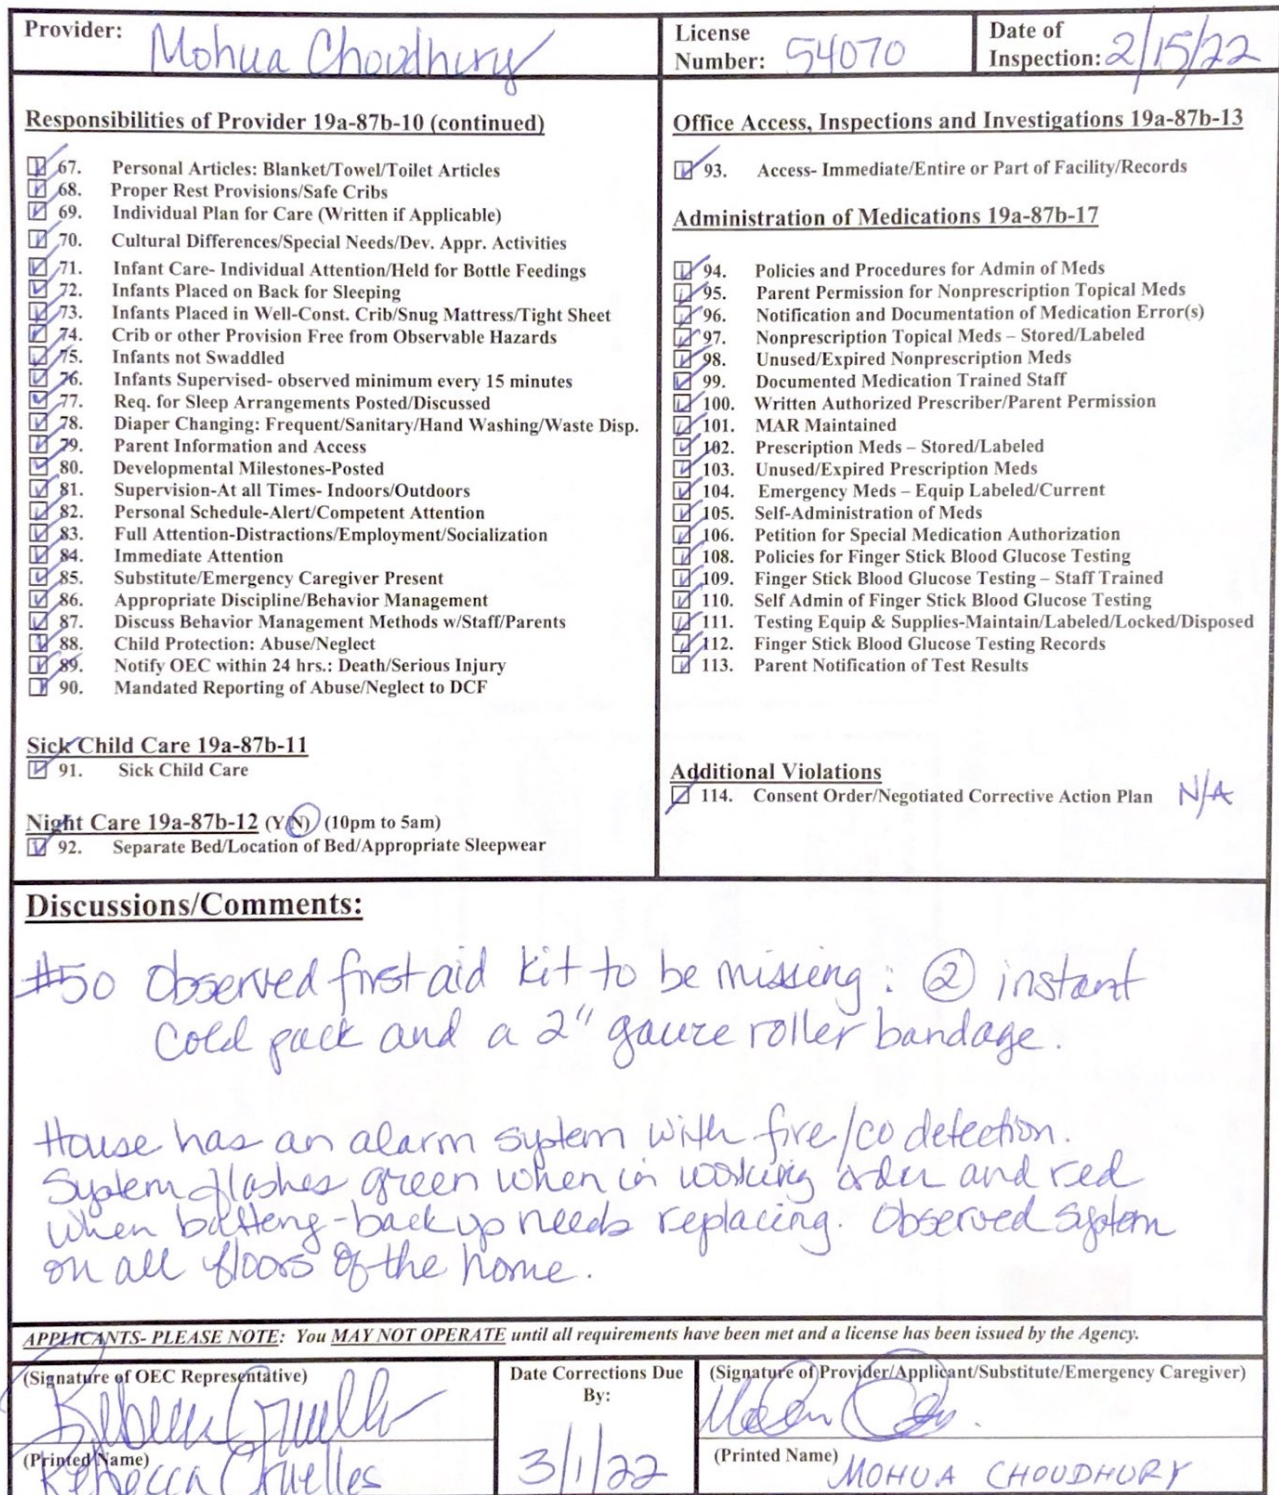 Provider: Mohua Choudhury
License Number: 54070
Date of Inspection: 2/15/22
Responsibilities of Provider 19a-87b-10 (continued)
67. Personal Articles: Blanket/Towel/Toilet Articles
68. Proper Rest Provisions/Safe Cribs
69. Individual Plan for Care (Written if Applicable)
70. Cultural Differences/Special Needs/Dev. Appr. Activities
71. Infant Care- Individual Attention/Held for Bottle Feedings
72. Infants Placed on Back for Sleeping
73. Infants Placed in Well-Const. Crib/Snug Mattress/Tight Sheet
74. Crib or other Provision Free from Observable Hazards
75. Infants not Swaddled
76. Infants Supervised- observed minimum every 15 minutes
77. Req. for Sleep Arrangements Posted/Discussed
78. Diaper Changing: Frequent/Sanitary/Hand Washing/Waste Disp.
79. Parent Information and Access
80. Developmental Milestones-Posted
81. Supervision-At all Times- Indoors/Outdoors
82. Personal Schedule-Alert/Competent Attention
83. Full Attention-Distractions/Employment/Socialization
84. Immediate Attention
85. Substitute/Emergency Caregiver Present
86. Appropriate Discipline/Behavior Management
87. Discuss Behavior Management Methods w/Staff/Parents
88. Child Protection: Abuse/Neglect
89. Notify OEC within 24 hrs.: Death/Serious Injury
90. Mandated Reporting of Abuse/Neglect to DCF
Sick Child Care 19a-87b-11
91. Sick Child Care
Night Care 19a-87b-12 (Y/N) (10pm to 5am)
92. Separate Bed/Location of Bed/Appropriate Sleepwear
Office Access, Inspections and Investigations 19a-87b-13
93. Access- Immediate/Entire or Part of Facility/Records
Administration of Medications 19a-87b-17
94. Policies and Procedures for Admin of Meds
95. Parent Permission for Nonprescription Topical Meds
96. Notification and Documentation of Medication Error(s)
97. Nonprescription Topical Meds – Stored/Labeled
98. Unused/Expired Nonprescription Meds
99. Documented Medication Trained Staff
100. Written Authorized Prescriber/Parent Permission
101. MAR Maintained
102. Prescription Meds – Stored/Labeled
103. Unused/Expired Prescription Meds
104. Emergency Meds – Equip Labeled/Current
105. Self-Administration of Meds
106. Petition for Special Medication Authorization
108. Policies for Finger Stick Blood Glucose Testing
109. Finger Stick Blood Glucose Testing – Staff Trained
110. Self Admin of Finger Stick Blood Glucose Testing
111. Testing Equip & Supplies-Maintain/Labeled/Locked/Disposed
112. Finger Stick Blood Glucose Testing Records
113. Parent Notification of Test Results
Additional Violations
114. Consent Order/Negotiated Corrective Action Plan N/A
Discussions/Comments:
#50 Observed first aid kit to be missing: ② instant
cold pack and a 2" gauze roller bandage.
House has an alarm system with fire/co detection.
System flashes green when in working order and red
when battery-back up needs replacing. Observed system
on all floors of the home.
APPLICANTS- PLEASE NOTE: You MAY NOT OPERATE until all requirements have been met and a license has been issued by the Agency.
(Signature of OEC Representative)
Rebecca Cruelles
(Printed Name)
Rebecca Cruelles
Date Corrections Due
By:
3/1/22
(Signature of Provider/Applicant/Substitute/Emergency Caregiver)
(Printed Name) MOHUA CHOUDHURY